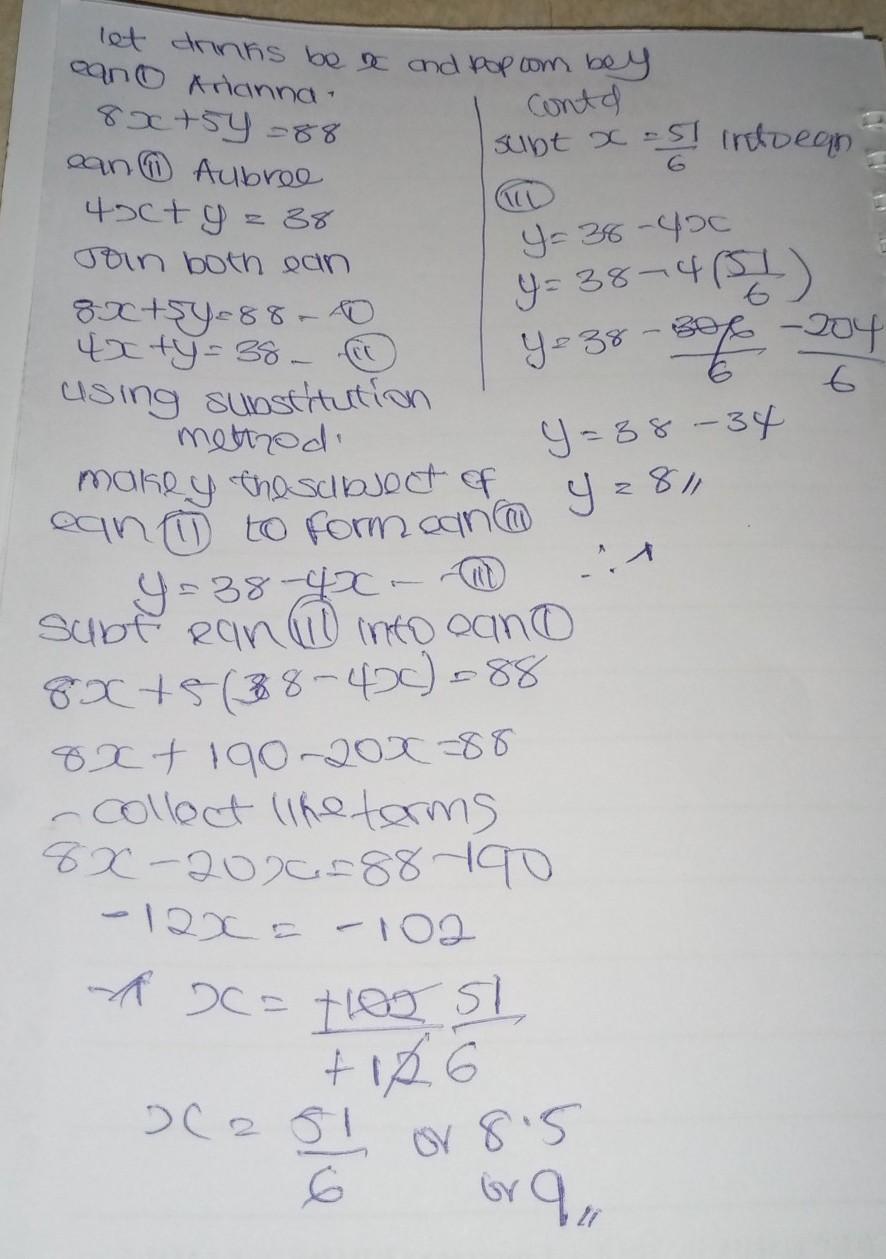 let drinks be x and popcorn be y
eqn (I) Arianna.
8x+5y=88
eqn (II) Aubree
4x+y = 38
Join both eqn
8x+5y=88 - (I)
4x+y=38 - (II)
using substitution
method.
make y the subject of
eqn (II) to form eqn (III)
y=38-4x - - (III)
subt eqn (III) into eqn (I)
8x+5(38-4x)=88
8x+190-20x=88
- collect like terms
8x-20x=88-190
-12x = -102
x = +102 51
+12 6
x = 51 or 8.5
6 or 9,,
contd
subt x = 51 into eqn
6
(III)
y=38-4x
y=38-4(51)
6
y=38- -204
6 6
y=38-34
y=8,,
∴